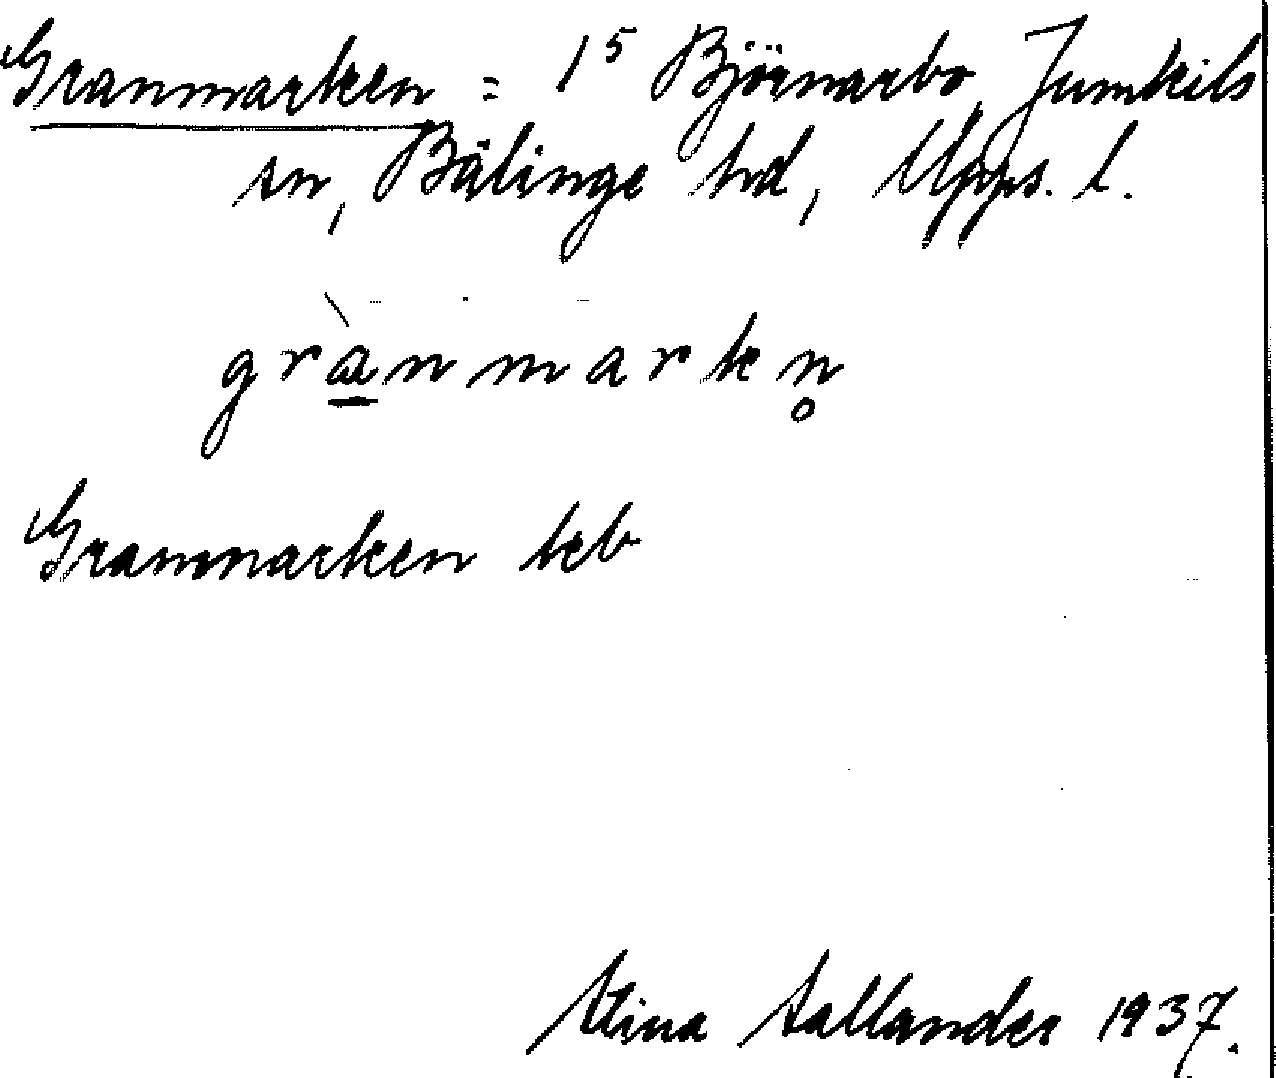 Granmarken = 1⁵ Björnarbo, Jumkils
sn, Bälinge hd, Upps. l.
grànmarkn̥
Granmarken teb
Stina Sallander 1937.